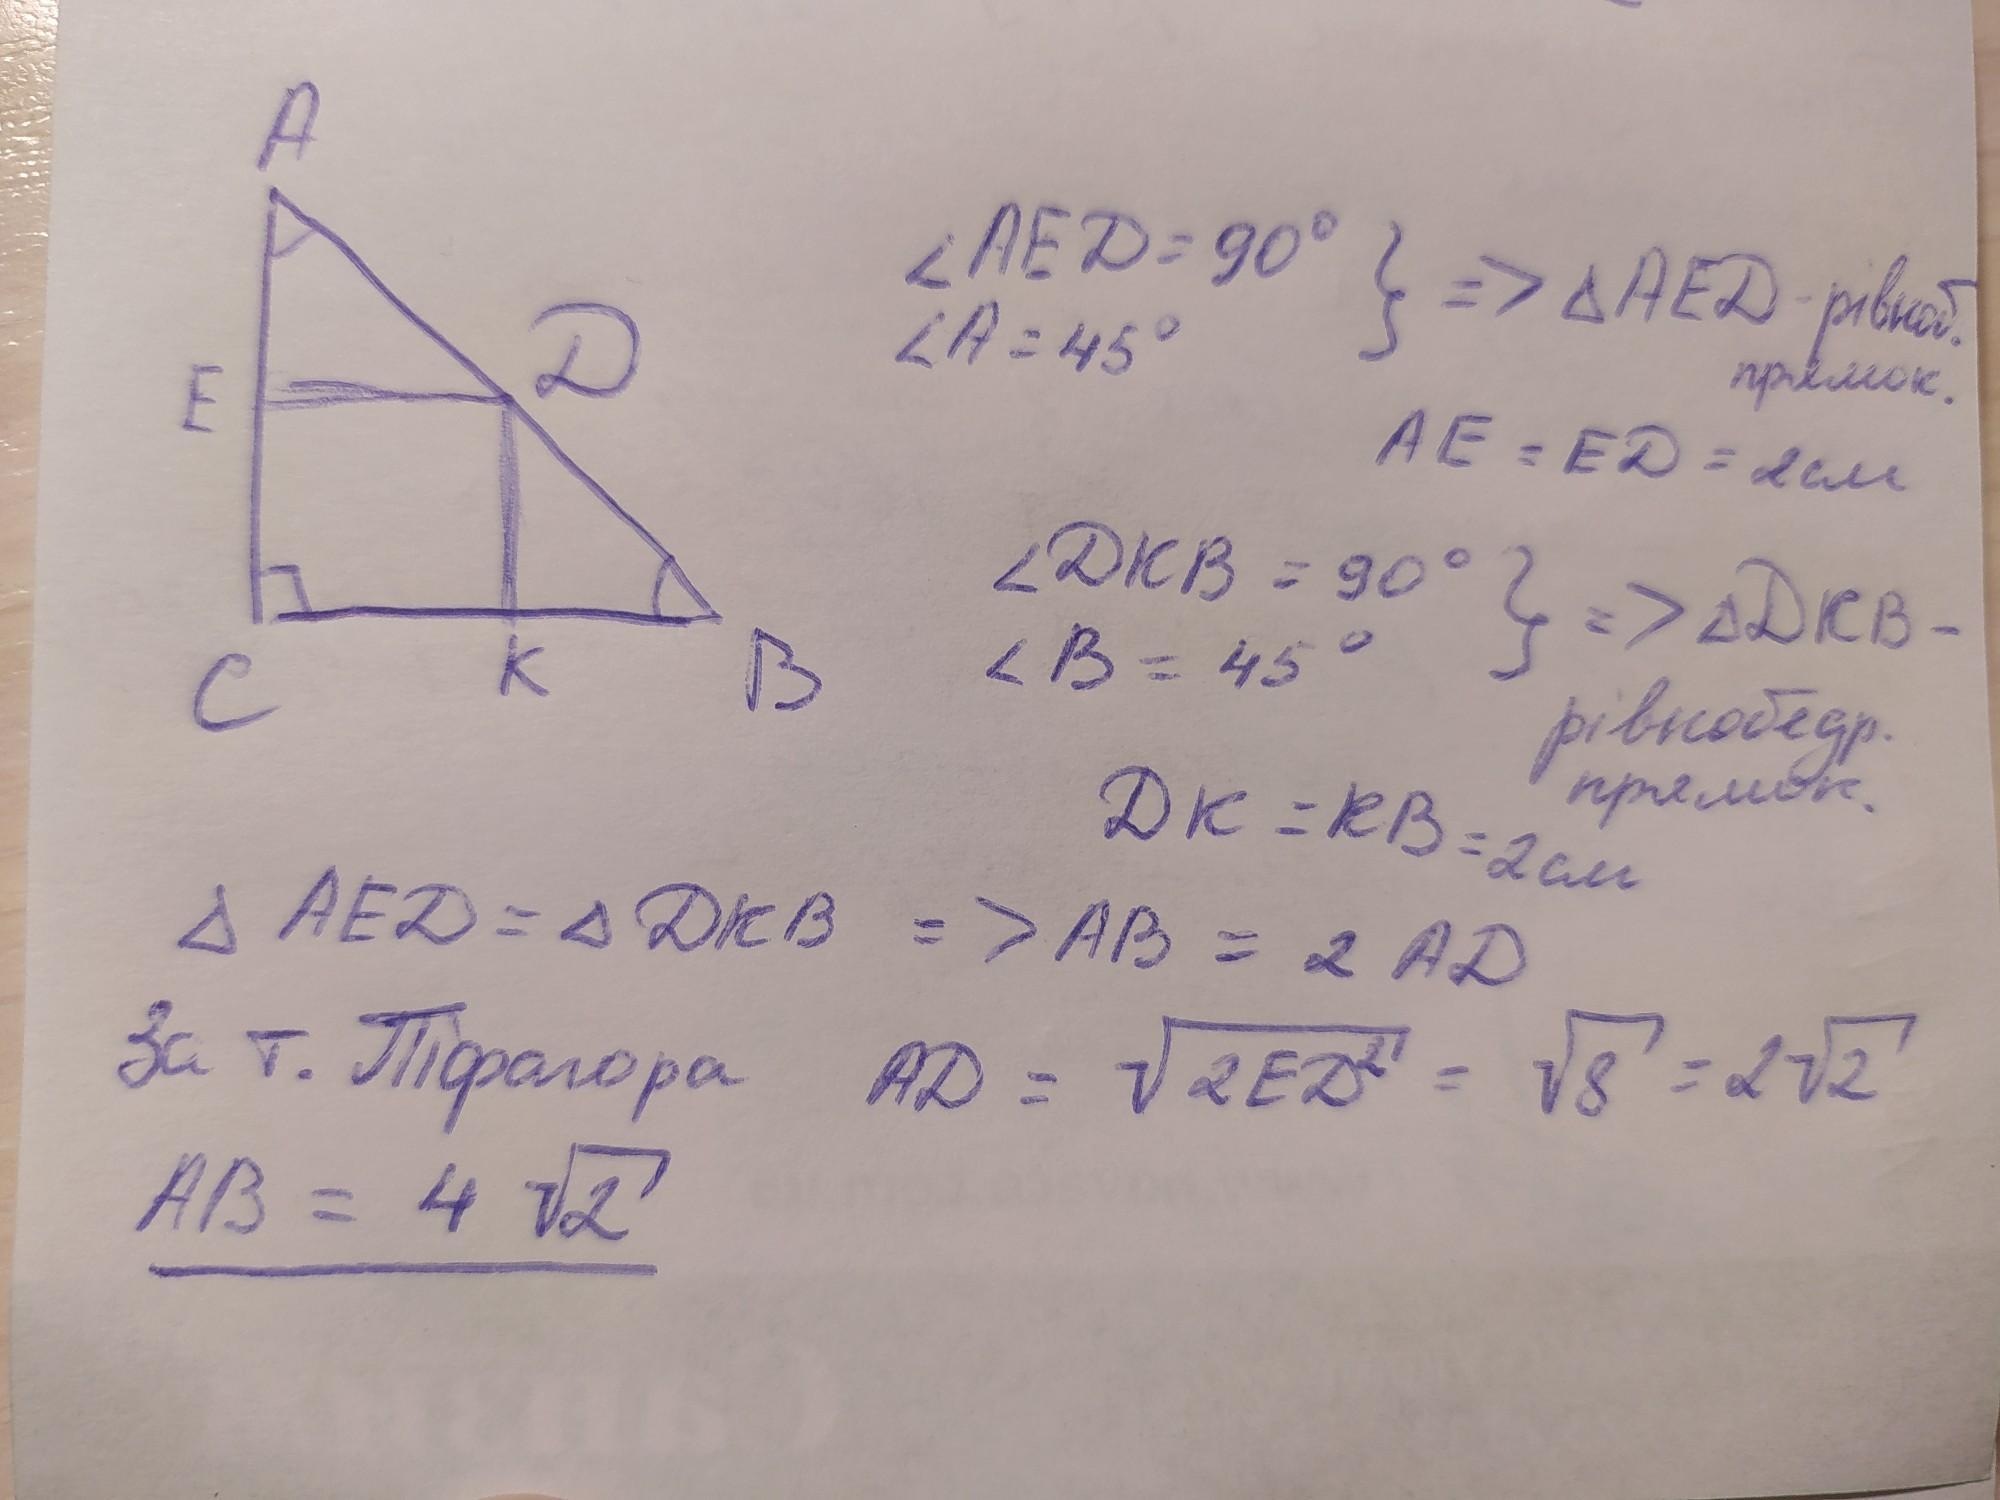 A
E
D
C
K
B
∠AED = 90° } => △AED - рівноб.
∠A = 45°
прямок.
AE = ED = 2см
∠DKB = 90° } => △DKB -
∠B = 45°
рівнобедр.
прямок.
DK = KB = 2см
△ AED = △ DKB => AB = 2 AD
За т. Піфагора AD = √2ED² = √8 = 2√2
AB = 4 √2